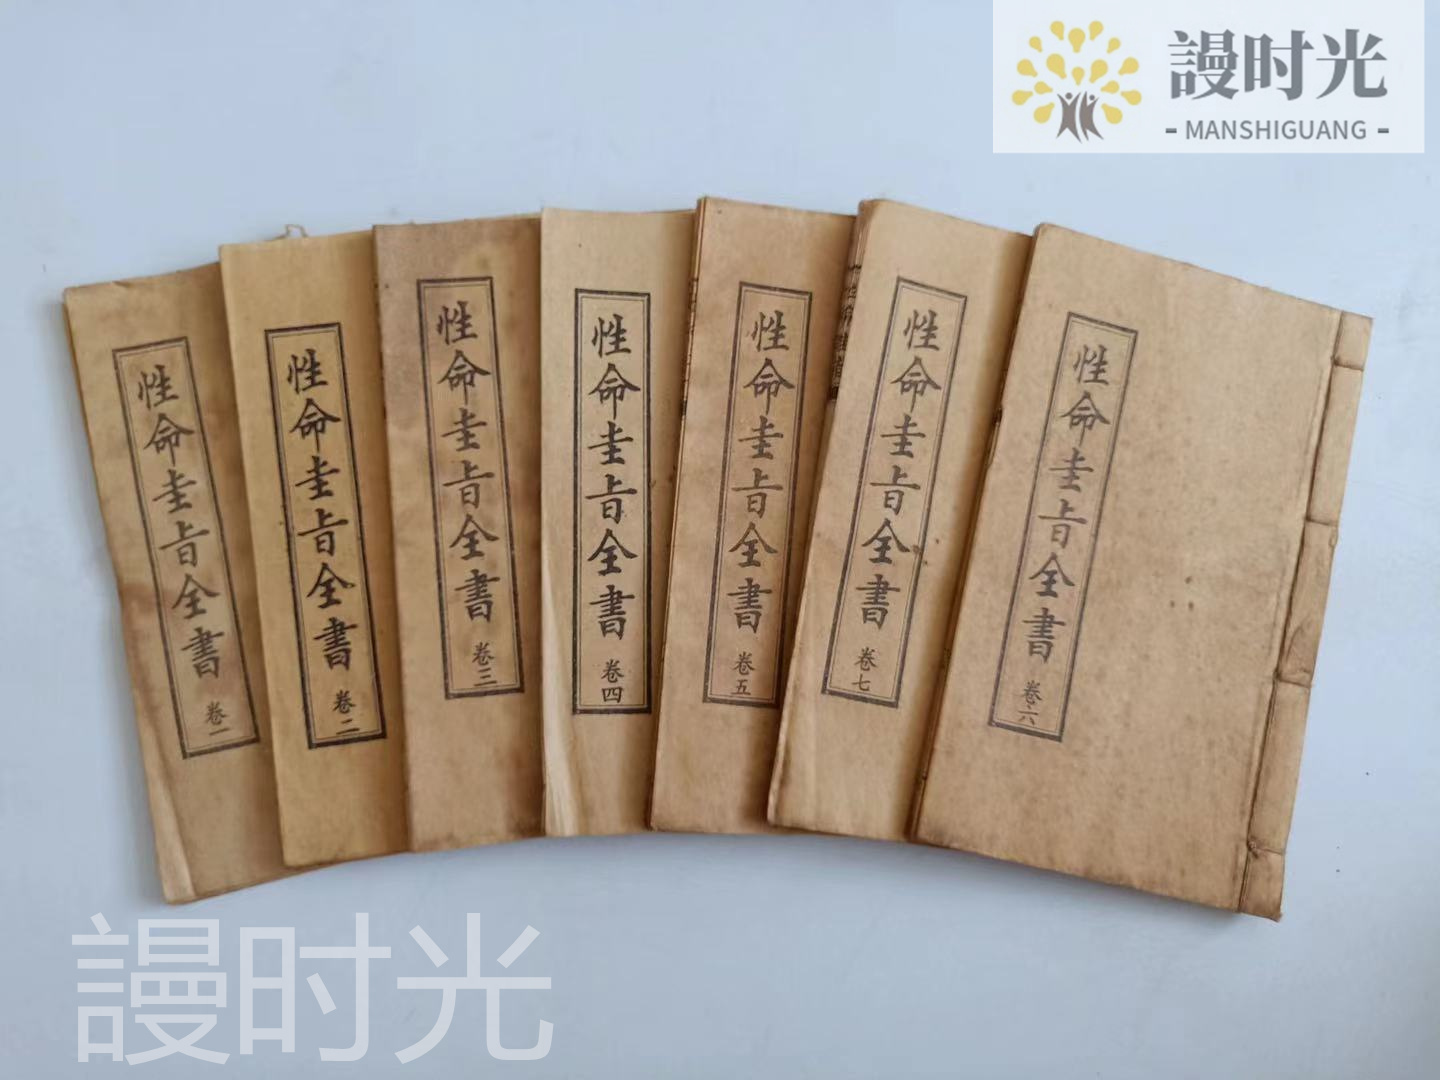 謾时光
- MANSHIGUANG -
性命圭旨全書 卷一
性命圭旨全書 卷二
性命圭旨全書 卷三
性命圭旨全書 卷四
性命圭旨全書 卷五
性命圭旨全書 卷七
性命圭旨全書 卷六
謾时光